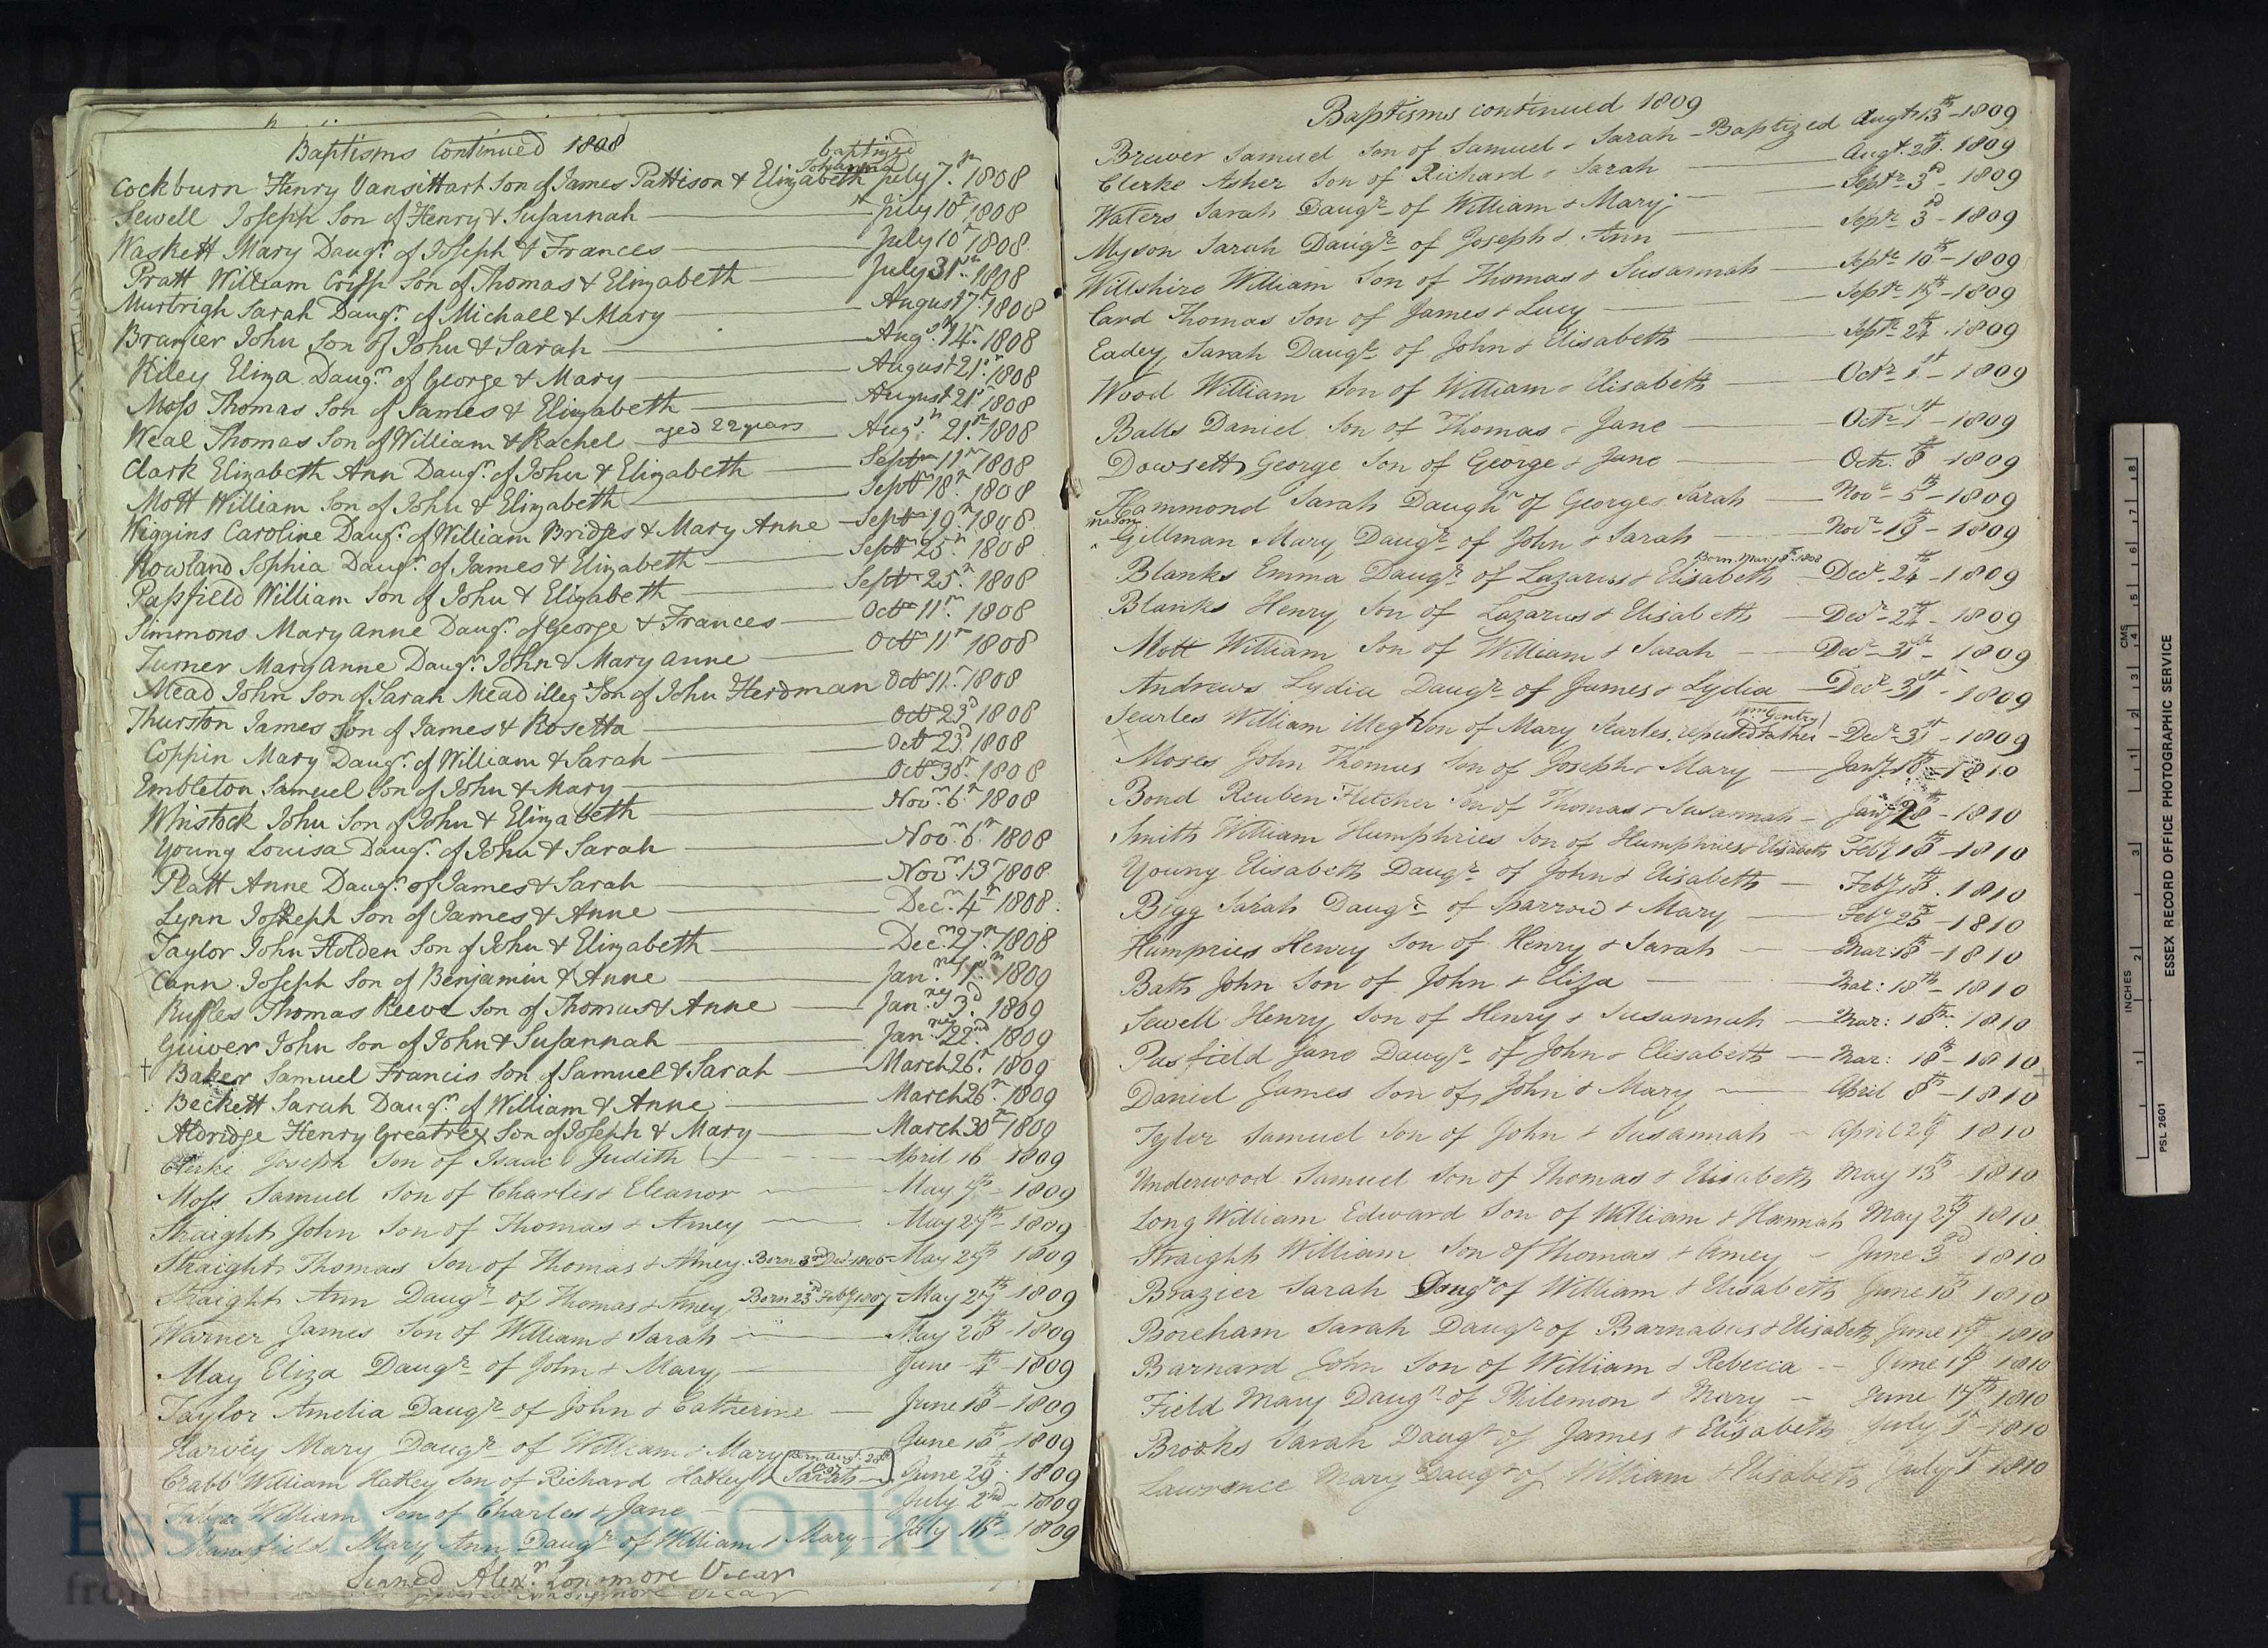 D/P 65/1/3
Baptisms Continued 1808
baptized
Cockburn Henry Vansittart Son of James Pattison & Elizabeth Johanna July 7th 1808
Sewell Joseph Son of Henry & Susannah July 10th 1808
Waskett Mary Daugr. of Joseph & Frances July 10th 1808
Pratt William Crisp Son of Thomas & Elizabeth July 31st 1808
Murtrigh Sarah Daugr. of Michall & Mary August 7th 1808
Brasier John Son of John & Sarah Augst 14th 1808
Kiley Eliza Daugr. of George & Mary August 21st 1808
Moss Thomas Son of James & Elizabeth August 21st 1808
Weal Thomas Son of William & Rachel aged 22 years Augst 21st 1808
Clark Elizabeth Ann Daugr. of John & Elizabeth Septr 11th 1808
Mott William Son of John & Elizabeth Septr 18th 1808
Wiggins Caroline Daugr. of William Bridges & Mary Anne Septr 19th 1808
Rowland Sophia Daugr. of James & Elizabeth Septr 25th 1808
Passfield William Son of John & Elizabeth Septr 25th 1808
Simmons Mary Anne Daugr. of George & Frances Octr 11th 1808
Turner Mary Anne Daugr. John & Mary Anne Octr 11th 1808
Mead John Son of Sarah Mead illeg. Son of John Herdman Octr 11th 1808
Thurston James Son of James & Rosetta Octr 23d 1808
Coppin Mary Daugr. of William & Sarah Octr 23d 1808
Embleton Samuel Son of John & Mary Octr 30th 1808
Whistock John Son of John & Elizabeth Novr. 6th 1808
Young Louisa Daugr. of John & Sarah Novr. 6th 1808
Platt Anne Daugr. of James & Sarah Novr 13th 1808
Lynn Joseph Son of James & Anne Decr. 4th 1808
Taylor John Holden Son of John & Elizabeth Decr. 27th 1808
Cann Joseph Son of Benjamin & Anne Janry 1st 1809
Ruffles Thomas Reeve Son of Thomas & Anne Janry 3d 1809
Guiver John Son of John & Susannah Janry 22nd 1809
+ Baker Samuel Francis Son of Samuel & Sarah March 26th 1809
Beckett Sarah Daugr. of William & Anne March 26th 1809
Aldridge Henry Greatrex Son of Joseph & Mary March 30th 1809
Clerke Joseph Son of Isaac & Judith April 16 1809
Moss Samuel Son of Charles & Eleanor May 7th 1809
Straight John Son of Thomas & Amey May 27th 1809
Straight Thomas Son of Thomas & Amey Born 3rd Decr 1805 May 27th 1809
Straight Ann Daugr of Thomas & Amey Born 23rd Feby 1807 May 27th 1809
Warner James Son of William & Sarah May 28th 1809
May Eliza Daugr of John & Mary June 4th 1809
Taylor Amelia Daugr of John & Catherine June 18th 1809
Harvey Mary Daugr of William & Mary June 18th 1809
Crabb William Hatley Son of Richard Hatley & Sarah Born Augt. 28th June 29th 1809
William Son of Charles & Jane July 2nd 1809
Mansfield Mary Ann Daugr of William & Mary July 16th 1809
Signed Alexr. Longmore Vicar
Baptisms continued 1809
Brewer Samuel Son of Samuel & Sarah Baptized Augt 13th 1809
Clerke Asher Son of Richard & Sarah Augt. 28th 1809
Waters Sarah Daugr of William & Mary Septr 3d 1809
Myson Sarah Daugr of Joseph & Ann Septr 3d 1809
Willshire William Son of Thomas & Susannah Septr 10th 1809
Card Thomas Son of James & Lucy Septr 17th 1809
Eadey Sarah Daugr of John & Elisabeth Septr 24th 1809
Wood William Son of William & Elisabeth Octr 1st 1809
Balls Daniel Son of Thomas & Jane Octr 1st 1809
Dowsett George Son of George & Jane Octr. 8th 1809
Hammond Sarah Daughr of George & Sarah Novr 5th 1809
Mason
Gillman Mary Daugr of John & Sarah Novr 19th 1809
Blanks Emma Daugr of Lazarus & Elisabeth Born May 8th 1808 Decr 24th 1809
Blanks Henry Son of Lazarus & Elisabeth Decr 24th 1809
Mott William Son of William & Sarah Decr 31st 1809
Andrews Lydia Daugr of James & Lydia Decr 31st 1809
Searles William illegt Son of Mary Searles, reputed Father Wm Gentry Decr 31st 1809
Moses John Thomas Son of Joseph & Mary Jany 18th 1810
Bond Reuben Fletcher Son of Thomas & Susannah Jany 28th 1810
Smith William Humphries Son of Humphries & Elisabeth Feby 18th 1810
Young Elisabeth Daugr of John & Elisabeth Feby 18th 1810
Bigg Sarah Daugr of Sparrow & Mary Feby 25th 1810
Humpries Henry Son of Henry & Sarah Mar: 18th 1810
Bath John Son of John & Eliza Mar: 18th 1810
Sewell Henry Son of Henry & Susannah Mar: 18th 1810
Pasfield Jane Daugr of John & Elisabeth Mar: 18th 1810
Daniel James Son of John & Mary April 8th 1810
Tyler Samuel Son of John & Susannah April 29 1810
Underwood Samuel Son of Thomas & Elisabeth May 13th 1810
Long William Edward Son of William & Hannah May 27th 1810
Straight William Son of Thomas & Amey June 3d 1810
Brazier Sarah Daugr of William & Elisabeth June 10th 1810
Boreham Sarah Daugr of Barnabus & Elisabeth June 17th 1810
Barnard John Son of William & Rebecca June 17th 1810
Field Mary Daugr of Philemon & Mary June 17th 1810
Brooks Sarah Daugr of James & Elisabeth July 1st 1810
Lawrence Mary Daugr of William & Elisabeth July 1st 1810
Essex Archives Online
INCHES 1 2 3
CMS 1 2 3 4 5 6 7 8
PSL 2601
ESSEX RECORD OFFICE PHOTOGRAPHIC SERVICE